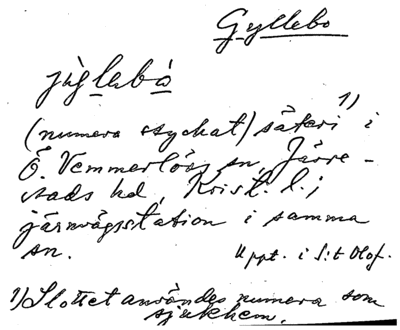 Gyllebo
jùglebò
1)
(numera styckat) säteri i
Ö. Vemmerlövs sn, Järre-
stads hd, Krist. l.;
järnvägsstation i samma
sn.
Uppt. i S:t Olof.
1) Slottet användes numera som
sjukhem.